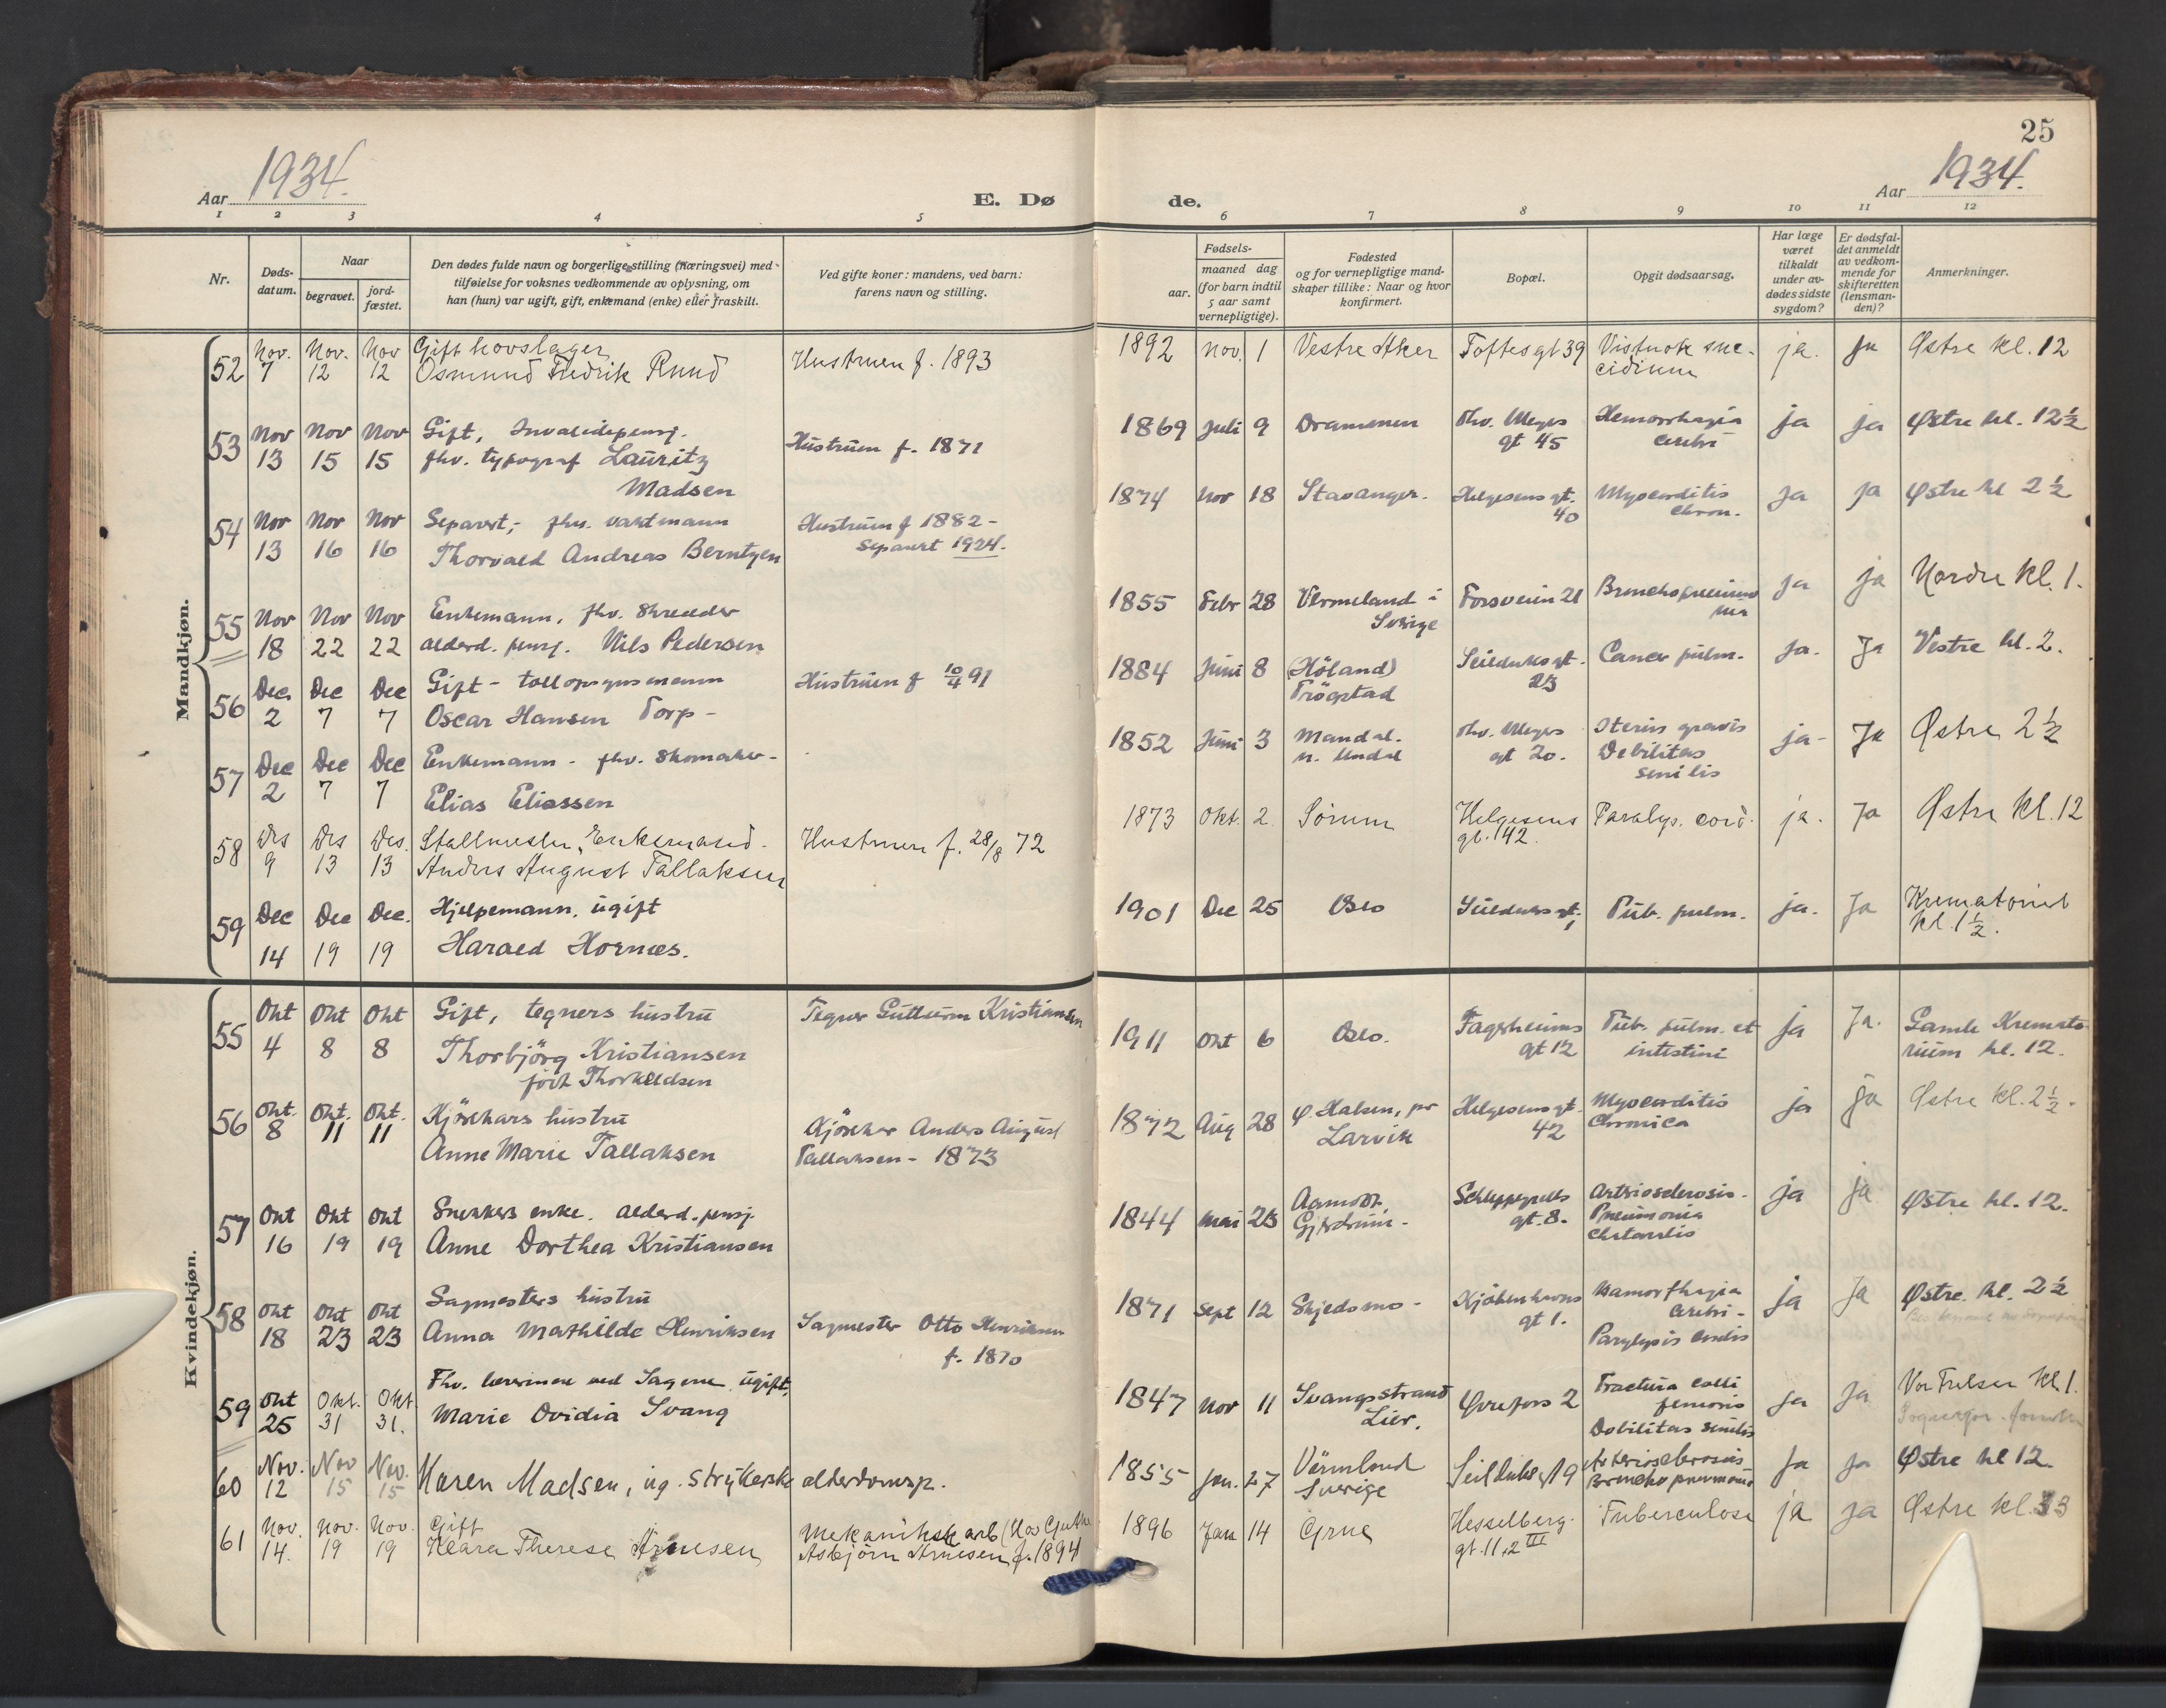 25
Aar 1934.
E. Dø
de.
Aar 1934.
1 2 3 4 5 6 7 8 9 10 11 12
Nr.
Døds-
datum.
Naar
begravet.
jord-
fæstet.
Den dødes fulde navn og borgerlige stilling (næringsvei) med
tilføielse for voksnes vedkommende av oplysning, om
han (hun) var ugift, gift, enkemand (enke) eller fraskilt.
Ved gifte koner: mandens, ved barn:
farens navn og stilling.
Fødsels-
aar.
maaned dag
(for barn indtil
5 aar samt
vernepligtige).
Fødested
og for vernepligtige mand-
skaper tillike: Naar og hvor
konfirmert.
Bopæl.
Opgit dødsaarsag.
Har læge
været
tilkaldt
under av-
dødes sidste
sygdom?
Er dødsfal-
det anmeldt
av vedkom-
mende for
skifteretten
(lensman-
den)?
Anmerkninger.
Mandkjøn.
52 Nov. 7 Nov. 12 Nov 12
Gift hovslager
Osmund Fredrik Ruud
Hustruen f. 1893
1892 Nov. 1 Vestre Aker Toftesgt 39
ja. ja Østre kl. 12
53 Nov 13 Nov 15 Nov 15
Gift, Invalidepensj.
fhv. typograf Lauritz
Madsen
Hustruen f. 1871
1869 Juli 9 Drammen Thv. Meyers
gt 45
Hemorrhagia
cerebri
ja ja Østre kl. 12½
54 Nov 13 Nov 16 Nov 16
Separert, fhv. vaktmann
Thorvald Andreas Berntzen
Hustruen f 1882 -
separert 1924.
1874 Nov 18 Stavanger. Helgesens gt.
40
Myocarditis
chron.
ja ja Østre kl 2½
55 Nov 18 Nov 22 Nov 22
Enkemann, fhv. Skredder
alderd. pensj. Nils Pedersen
1855 Febr 28 Vermeland i
Sverige
Forsveien 21
Bronchopneumo
nia
ja ja Nordre kl. 1.
56 Dec. 2 Dec 7 Dec 7
Gift - tollopsynsmann
Oscar Hansen Torp -
Hustruen f 10/4 91
1884 Juni 8 (Höland)
Trögstad
Seilduksgt.
23
Cancer pulm. ja. Ja Vestre kl. 2.
57 Dec 2 Dec 7 Dec 7
Enkemann - fhv. Skomaker -
Elias Eliassen
1852 Juni 3 Mandal.
Thv. Meyers
gt 20.
Icterus gravis
Debilitas
senilis
ja - Ja Østre 2½
58 Des 9 Des 13 Des. 13
Enkemand.
Anders August Tallaksen
Hustruen f. 28/8 72
1873 Okt. 2 Sörum Helgesens
gt. 42.
Paralys. cord. ja. Ja Østre kl. 12
59 Dec 14 Dec 19 Dec. 19
Hjelpemann, ugift
Harald Hornæs.
1901 Dec 25 Oslo Seilduksgt. Tub. pulm. ja. Ja Krematoriet
kl. 1½.
Kvindekjøn.
55 Okt 4 Okt 8 Okt 8
Gift, tegners hustru
Thorbjörg Kristiansen
född Thorkildsen
Tegner Guttorm Kristiansen
1911 Okt 6 Oslo. Fagerheims
gt 12
Tub. pulm. et
intestini
ja Ja. Gamle Kremato
rium kl. 12.
56 Okt. 8 Okt. 11 Okt. 11
Kjörekars hustru
Anne Marie Tallaksen
Kjörekar Anders August
Tallaksen - 1873
1872 Aug 28 Ø. Halsen, pr
Larvik
Helgesensgt.
42
Myocarditis
chronica
ja ja Østre kl. 2½.
57 Okt 16 Okt 19 Okt 19
Snekkers enke. alderd. pensj.
Anne Dorthea Kristiansen
1844 Mai 23 Gjerdrum - Schleppegrells
gt. 8.
Arteriosclerosis.
Pneumonia
ja ja Østre kl. 12.
58 Okt 18 Okt 23 Okt 23
Sagmesters hustru
Anna Mathilde Henriksen
Sagmester Otto Henriksen
f. 1870
1871 Sept 12 Skjedsmo - Kjöbenhavns
gt 1.
Hæmorrhagia
cerebri -
ja Ja Østre. kl. 2½
59 Okt 25 Okt. 31 Okt 31.
Fhv. lærerinne ved Sagene, ugift,
Marie Ovidia Svang
1847 Nov 11 Svangsstrand
Lier.
Øvrefoss 2
Fractura colli
femoris
Debilitas senilis
ja Ja Vor Frelser kl 1.
60 Nov. 12 Nov 15 Nov. 15
Karen Madsen, ug. strykerske alderdomsp.
1855 Jan. 27 Värmland
Sverige
Seilduksgt 9
Arteriosclerosis
Bronchopneumoni
ja ja Østre kl 12.
61 Nov. 14. Nov. 19 Nov. 19
Gift
Klara Therese Arnesen
Mekanikerarb
Asbjörn Arnesen f. 1894
1896 Jan 14 Grue Hesselberg-
gt. 11, 2 III
Tuberculose ja ja Østre kl. 3